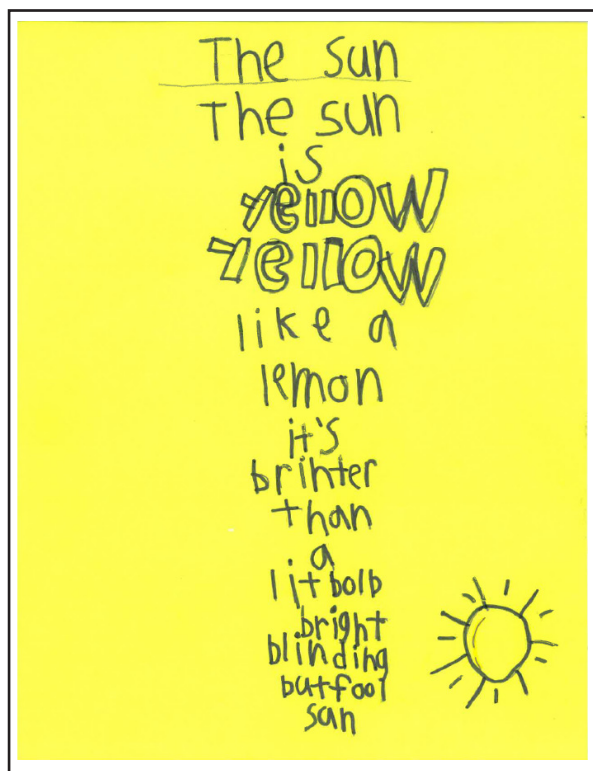 The sun
The sun
is
Yellow
Yellow
like a
lemon
it's
brihter
than
a
lit bolb
bright
blinding
butfool
sun